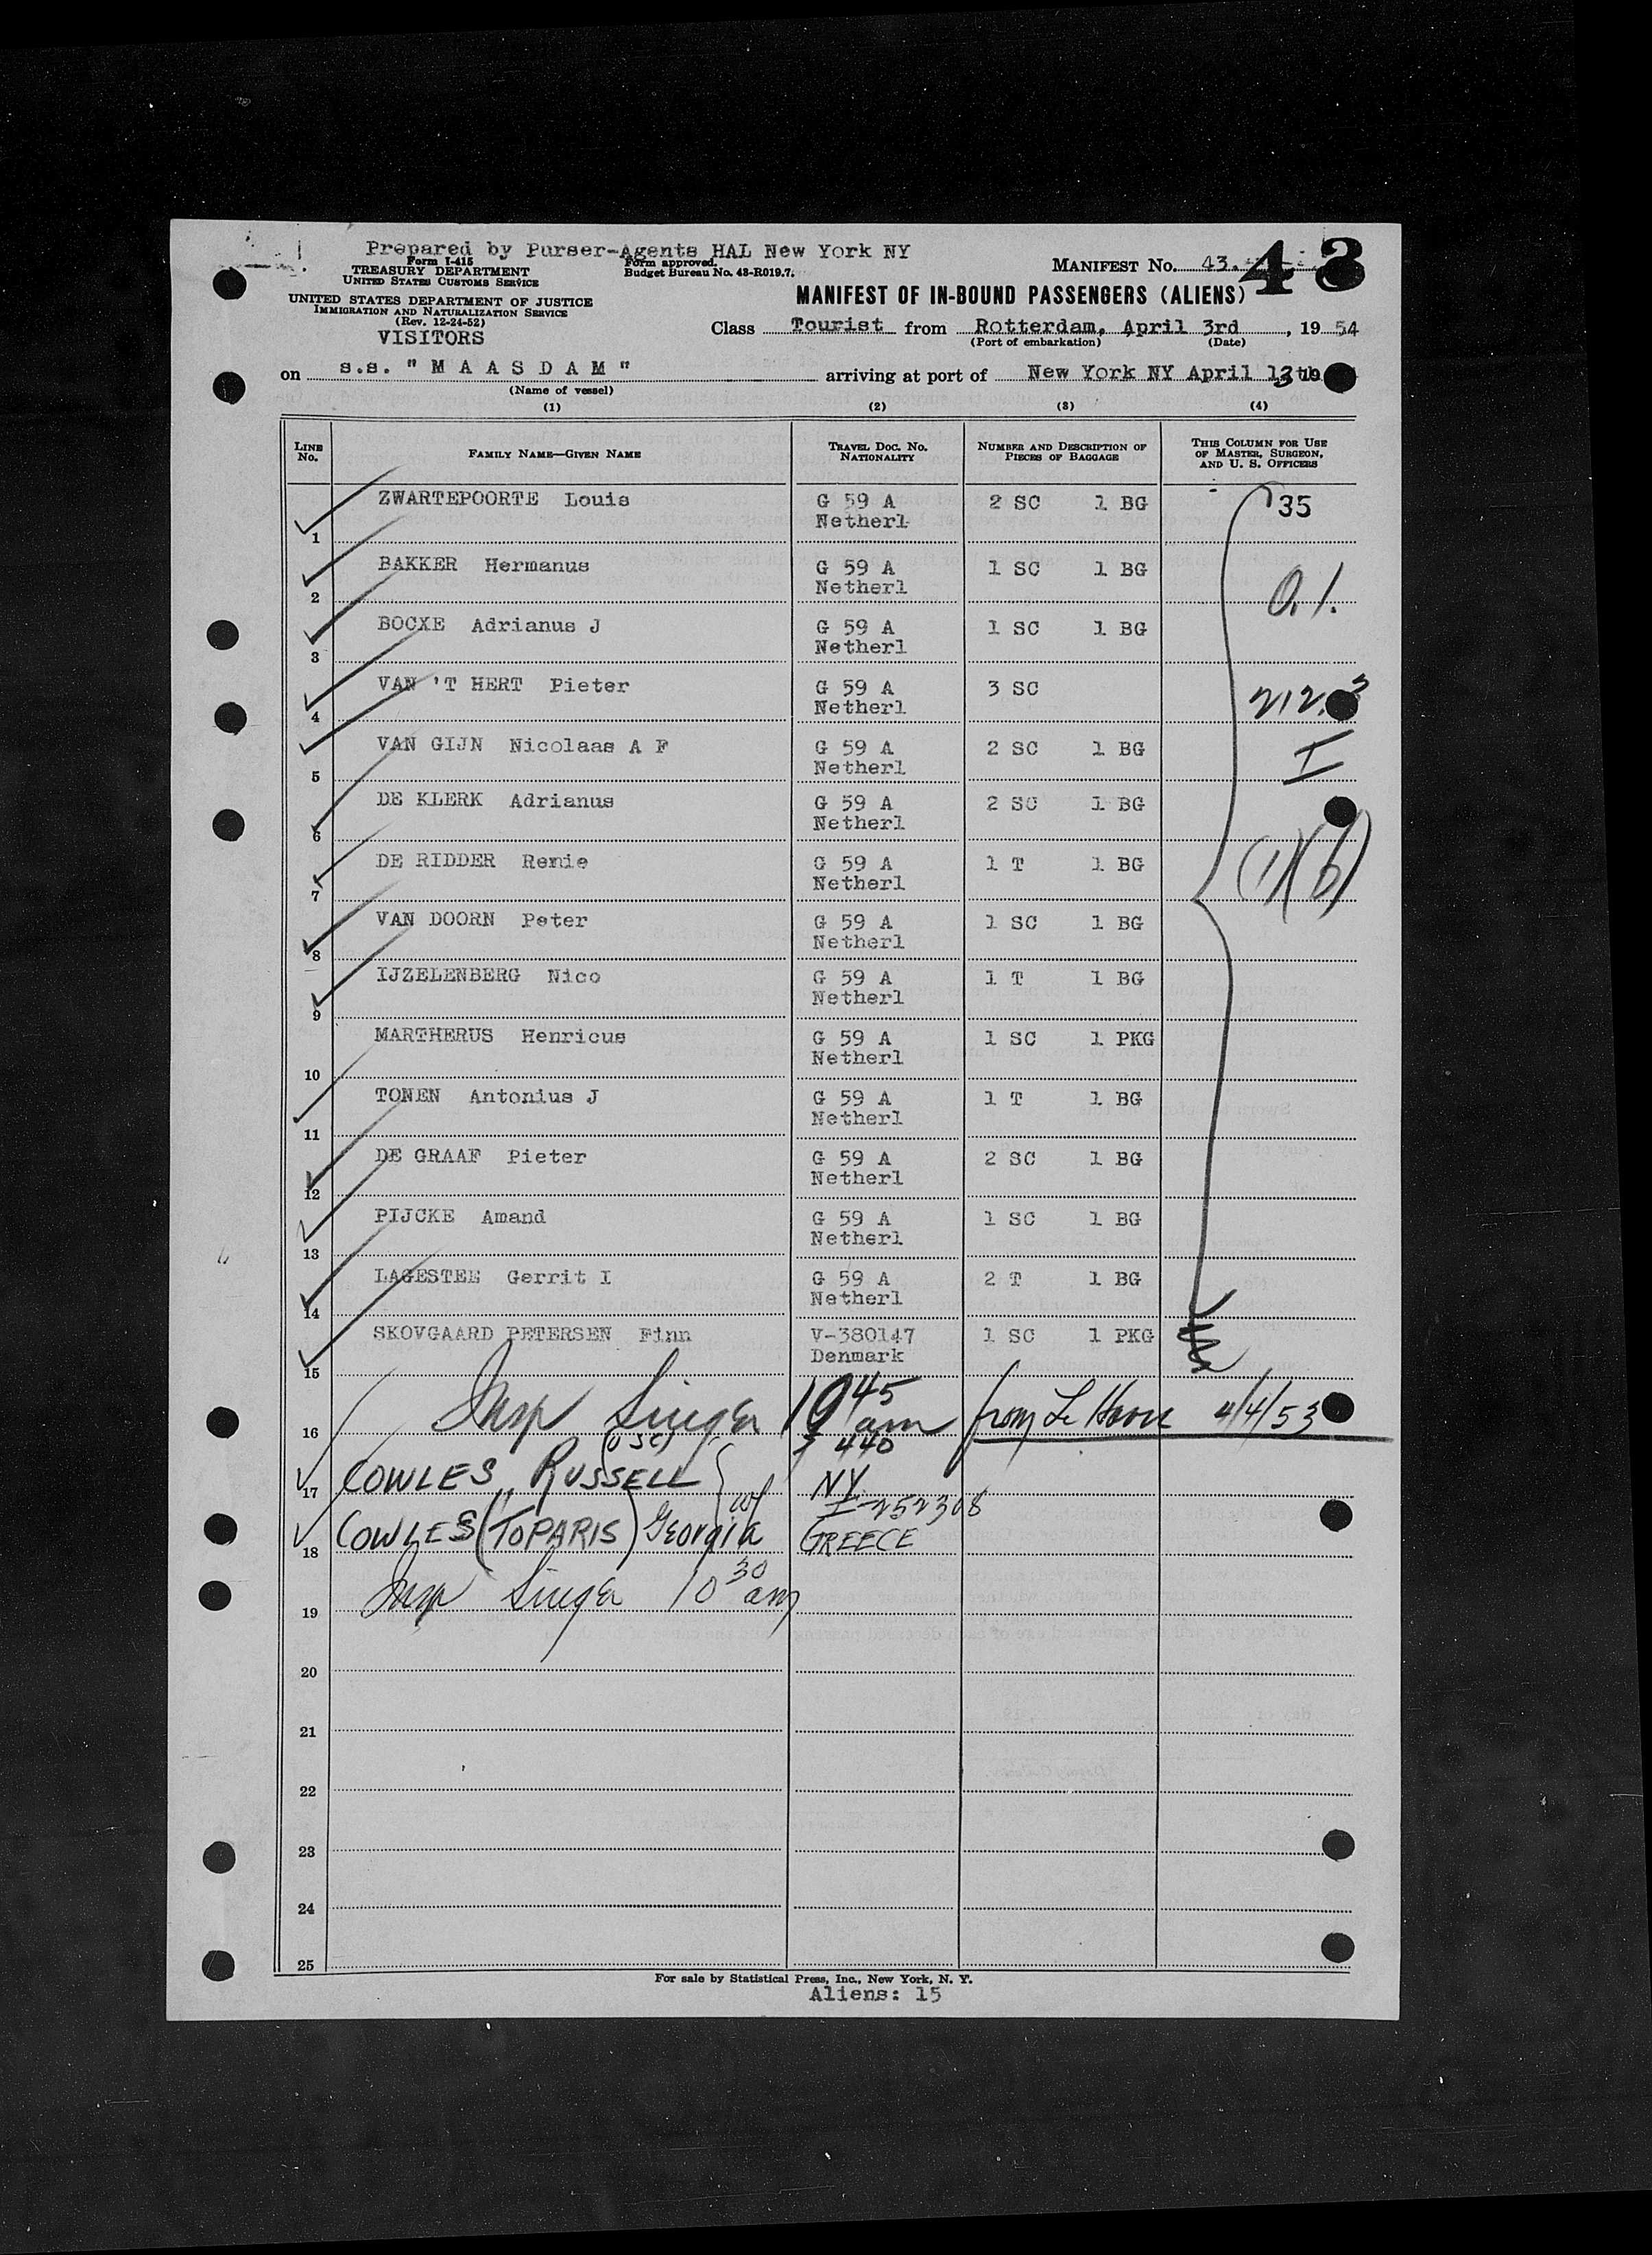 Prepared by Purser-Agents HAL New York NY
Form I-415
TREASURY DEPARTMENT
UNITED STATES CUSTOMS SERVICE
Form approved.
Budget Bureau No. 43-R019.7.
MANIFEST NO. 43. 43
UNITED STATES DEPARTMENT OF JUSTICE
IMMIGRATION AND NATURALIZATION SERVICE
(Rev. 12-24-52)
VISITORS
MANIFEST OF IN-BOUND PASSENGERS (ALIENS)
Class Tourist from Rotterdam, April 3rd, 19 54
(Port of embarkation) (Date)
on s.s. "M A A S D A M" arriving at port of New York NY April 13th
(Name of vessel)
(1) (2) (3) (4)
LINE No. FAMILY NAME—GIVEN NAME TRAVEL DOC. NO. NATIONALITY NUMBER AND DESCRIPTION OF PIECES OF BAGGAGE THIS COLUMN FOR USE OF MASTER, SURGEON, AND U. S. OFFICERS
1 ZWARTEPOORTE Louis G 59 A Netherl 2 SC 1 BG 35
2 BAKKER Hermanus G 59 A Netherl 1 SC 1 BG 0.1.
3 BOCXE Adrianus J G 59 A Netherl 1 SC 1 BG
4 VAN 'T HERT Pieter G 59 A Netherl 3 SC 212.
5 VAN GIJN Nicolaas A F G 59 A Netherl 2 SC 1 BG I
6 DE KLERK Adrianus G 59 A Netherl 2 SC 1 BG
7 DE RIDDER Renie G 59 A Netherl 1 T 1 BG (1)(b)
8 VAN DOORN Peter G 59 A Netherl 1 SC 1 BG
9 IJZELENBERG Nico G 59 A Netherl 1 T 1 BG
10 MARTHERUS Henricus G 59 A Netherl 1 SC 1 PKG
11 TONEN Antonius J G 59 A Netherl 1 T 1 BG
12 DE GRAAF Pieter G 59 A Netherl 2 SC 1 BG
13 PIJCKE Amand G 59 A Netherl 1 SC 1 BG
14 LAGESTEE Gerrit I G 59 A Netherl 2 T 1 BG
15 SKOVGAARD PETERSEN Finn V-380147 Denmark 1 SC 1 PKG
16 Insp Singer 10 45 am from Le Havre 4/4/53
(USC) 440
17 COWLES, RUSSELL NY
I-252308
18 COWLES (TOPARIS) Georgia GREECE
19 Insp Singer 10 30 am
20
21
22
23
24
25
For sale by Statistical Press, Inc., New York, N. Y.
Aliens: 15